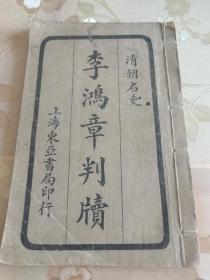 清朝名吏
李鴻章判牘
上海東亞書局印行